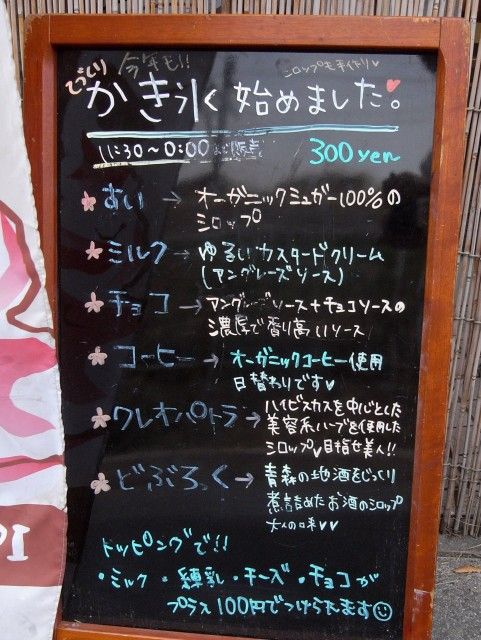 今年も!!
シロップも手作り♥
どっしり
かき氷く始めました。
11:30〜0:00
300yen
あい → オーガニックシュガー100%の
シロップ
ミルク → ゆるいカスタードクリーム
(アングレーズソース)
チョコ → アングレーズソース+チョコソースの
濃厚で香り高いソース
コーヒー → オーガニックコーヒー使用
日替わりです♥
クレオパトラ → ハイビスカスを中心とした
美容系ハーブを使用した
シロップ♥目指せ美人!!
どぶろっく → 青森の地酒をじっくり
煮詰めたお酒のシロップ
大人の味♥♥
トッピングで!!
・ミルク・練乳・チーズ・チョコが
プラス100円でつけられます☺